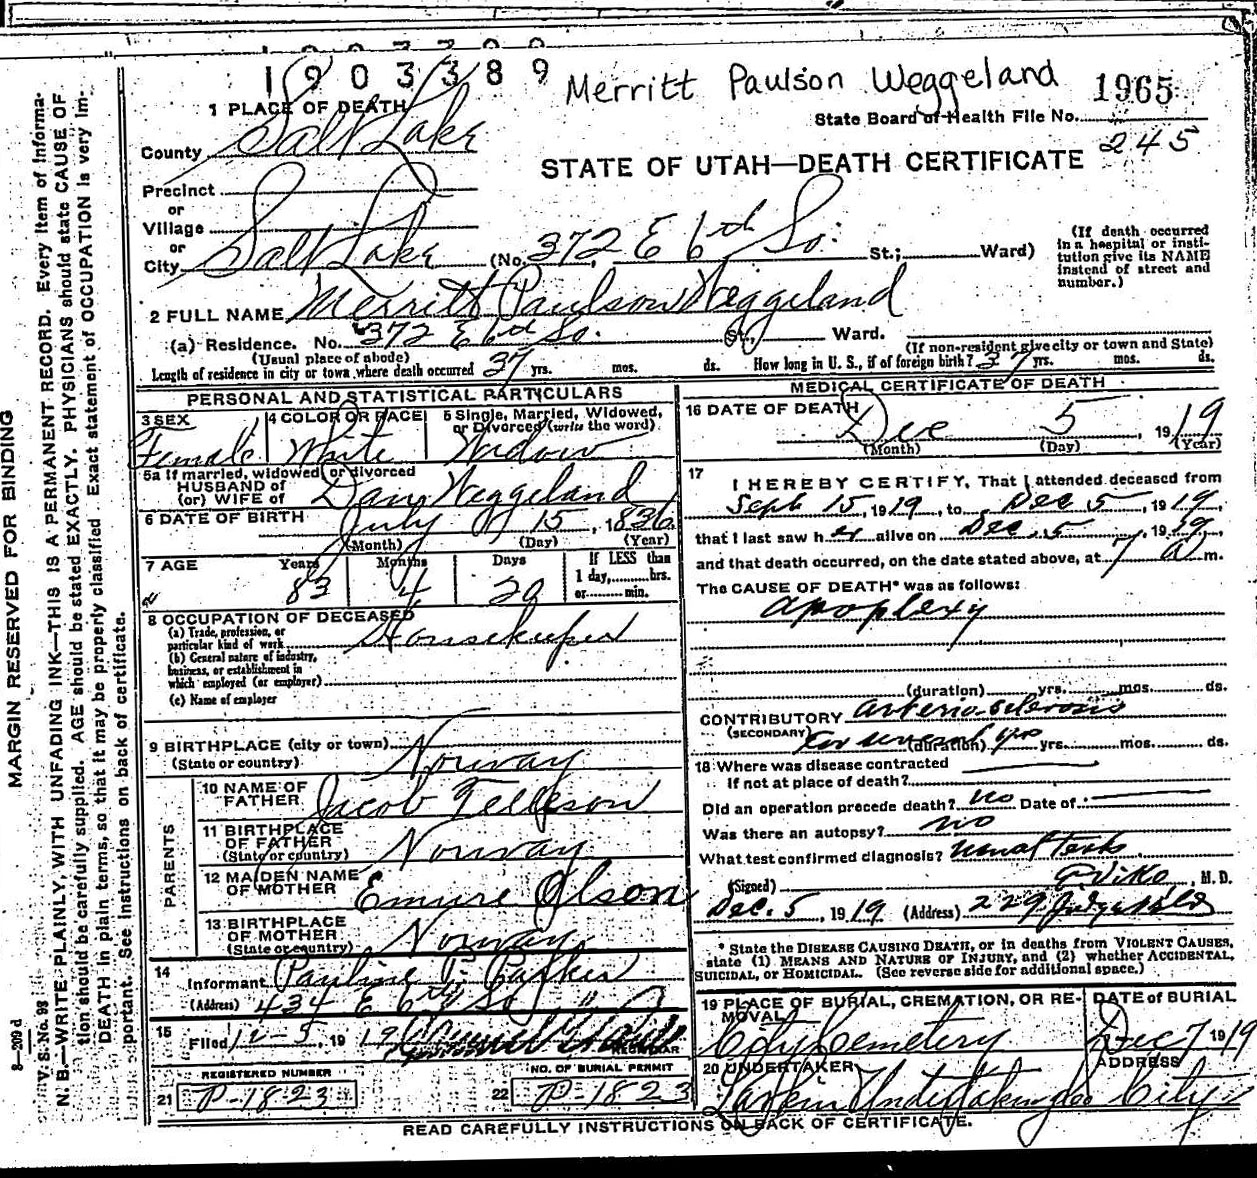 1903389
Merritt Paulson Weggeland
1965
State Board of Health File No.
245
STATE OF UTAH—DEATH CERTIFICATE
1 PLACE OF DEATH
County Salt Lake
Precinct
or
Village
or
City Salt Lake (No. 372 E 6th So. St.; Ward)
(If death occurred in a hospital or institution give its NAME instead of street and number.)
2 FULL NAME Merritt Paulson Weggeland
(a) Residence. No. 372 E 6th So. St., Ward.
(Usual place of abode) (If non-resident give city or town and State)
Length of residence in city or town where death occurred 37 yrs. mos. ds. How long in U. S., if of foreign birth? 37 yrs. mos. ds.
PERSONAL AND STATISTICAL PARTICULARS
3 SEX Female
4 COLOR OR RACE White
5 Single, Married, Widowed, or Divorced (write the word) Widow
5a If married, widowed or divorced
HUSBAND of
(or) WIFE of Dan Weggeland
6 DATE OF BIRTH July 15, 1836
(Month) (Day) (Year)
7 AGE Years 83 Months 4 Days 20
If LESS than
1 day, hrs.
or min.
8 OCCUPATION OF DECEASED
(a) Trade, profession, or
particular kind of work Housekeeper
(b) General nature of industry,
business, or establishment in
which employed (or employer)
(c) Name of employer
9 BIRTHPLACE (city or town)
(State or country) Norway
PARENTS
10 NAME OF FATHER Jacob Tellefson
11 BIRTHPLACE OF FATHER
(State or country) Norway
12 MAIDEN NAME OF MOTHER Olson
13 BIRTHPLACE OF MOTHER
(State or country) Norway
14
Informant Pauline
(Address) 434 E 6th So
15
Filed 12-5, 19 19
REGISTRAR
REGISTERED NUMBER
21 P-1823
NO. OF BURIAL PERMIT
22 P-1823
MEDICAL CERTIFICATE OF DEATH
16 DATE OF DEATH Dec 5, 1919
(Month) (Day) (Year)
17
I HEREBY CERTIFY, That I attended deceased from
Sept 15, 1919, to Dec 5, 1919,
that I last saw her alive on Dec. 5, 1919,
and that death occurred, on the date stated above, at 7 a m.
The CAUSE OF DEATH* was as follows:
apoplexy
(duration) yrs. mos. ds.
CONTRIBUTORY arterio-sclerosis
(SECONDARY) for several yrs (duration) yrs. mos. ds.
18 Where was disease contracted
If not at place of death?
Did an operation precede death? no Date of
Was there an autopsy? no
What test confirmed diagnosis? usual tests
(Signed) M. D.
Dec. 5, 1919 (Address) 229 Judge Bld
* State the DISEASE CAUSING DEATH, or in deaths from VIOLENT CAUSES,
state (1) MEANS AND NATURE OF INJURY, and (2) whether ACCIDENTAL,
SUICIDAL, or HOMICIDAL. (See reverse side for additional space.)
19 PLACE OF BURIAL, CREMATION, OR REMOVAL
City Cemetery
DATE of BURIAL
Dec 7 1919
20 UNDERTAKER
Larkin Undertaking Co
ADDRESS
City
READ CAREFULLY INSTRUCTIONS ON BACK OF CERTIFICATE.
MARGIN RESERVED FOR BINDING
V. S. No. 98
N. B.—WRITE PLAINLY, WITH UNFADING INK—THIS IS A PERMANENT RECORD. Every item of Informa-
tion should be carefully supplied. AGE should be stated EXACTLY. PHYSICIANS should state CAUSE OF
DEATH in plain terms, so that it may be properly classified. Exact statement of OCCUPATION is very im-
portant. See instructions on back of certificate.